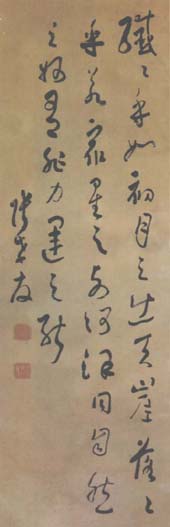 纖〻乎如初月之出天崖落〻
乎若衆星之列河漢同自然
之妙有非力運之能